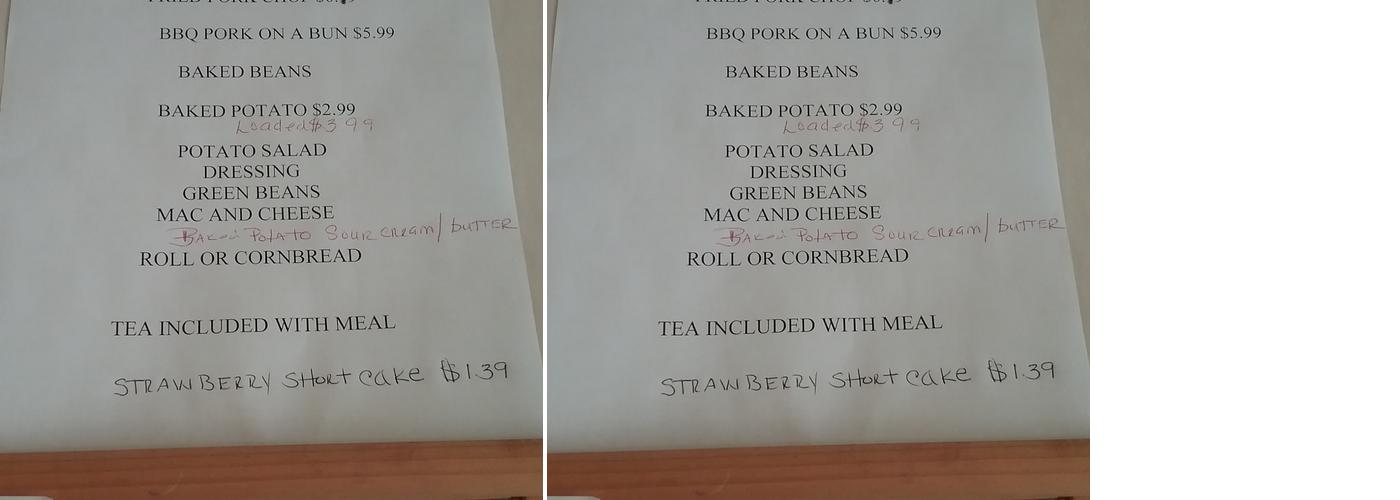 FRIED PORK CHOP
BBQ PORK ON A BUN $5.99
BAKED BEANS
BAKED POTATO $2.99
Loaded $3 99
POTATO SALAD
DRESSING
GREEN BEANS
MAC AND CHEESE
POTATO SOUR CREAM / BUTTER
ROLL OR CORNBREAD
TEA INCLUDED WITH MEAL
STRAWBERRY SHORT CAKE $1.39
FRIED PORK CHOP
BBQ PORK ON A BUN $5.99
BAKED BEANS
BAKED POTATO $2.99
Loaded $3 99
POTATO SALAD
DRESSING
GREEN BEANS
MAC AND CHEESE
POTATO SOUR CREAM / BUTTER
ROLL OR CORNBREAD
TEA INCLUDED WITH MEAL
STRAWBERRY SHORT CAKE $1.39